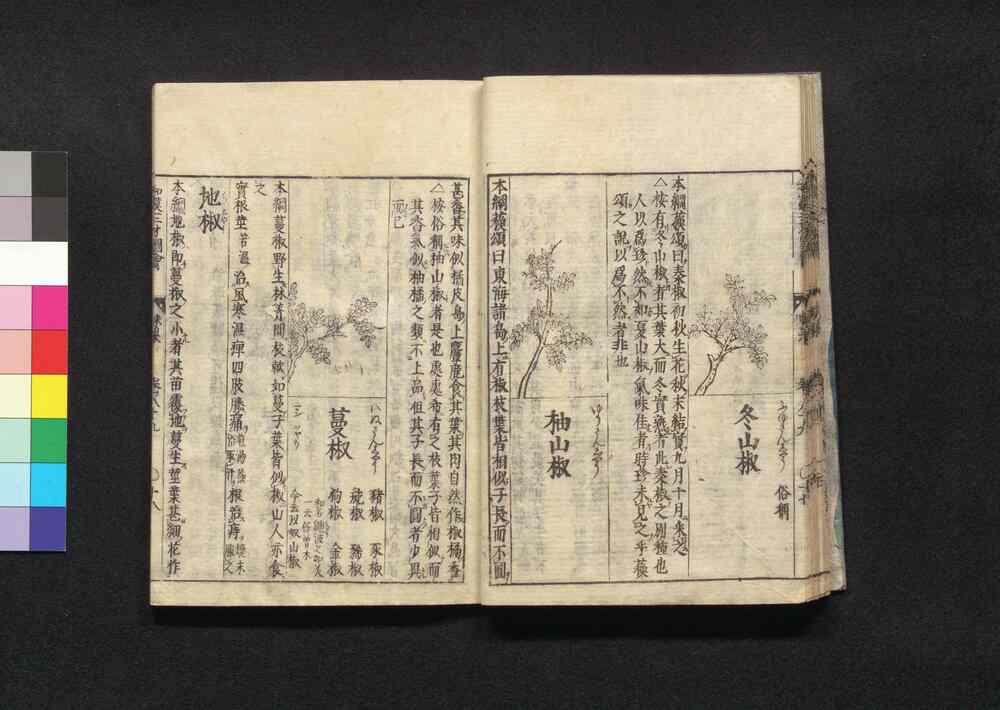 冬山椒
俗稱
本綱蘇頌曰秦椒初秋生花秋末結實九月十月采之
△按有冬山椒者其葉大而冬實熟者此秦椒之別種也
人以爲珍然不如夏山椒氣味佳者時珍未見之乎蘇
頌之說以爲不然者非也
柚山椒
本綱蘇頌曰東海諸島上有椒枝葉皆相似子長而不圓
甚香其味似橘皮島上麞鹿食其葉其肉自然作椒橘香
△按俗稱柚山椒者是也處處希有之枝葉子皆相似而
其香氣似柚橘之類不上品但其子長而不圓者少異
而已
蔓椒
猪椒 豕椒
彘椒 豨椒
狗椒 金椒
今云犬山椒
本綱蔓椒野生林箐間枝軟如蔓子葉皆似椒山人亦食
之
實根莖苦溫 治風寒濕痺四肢膝痛
地椒
本綱地椒即蔓椒之小者其苗覆地蔓生莖葉甚細花作